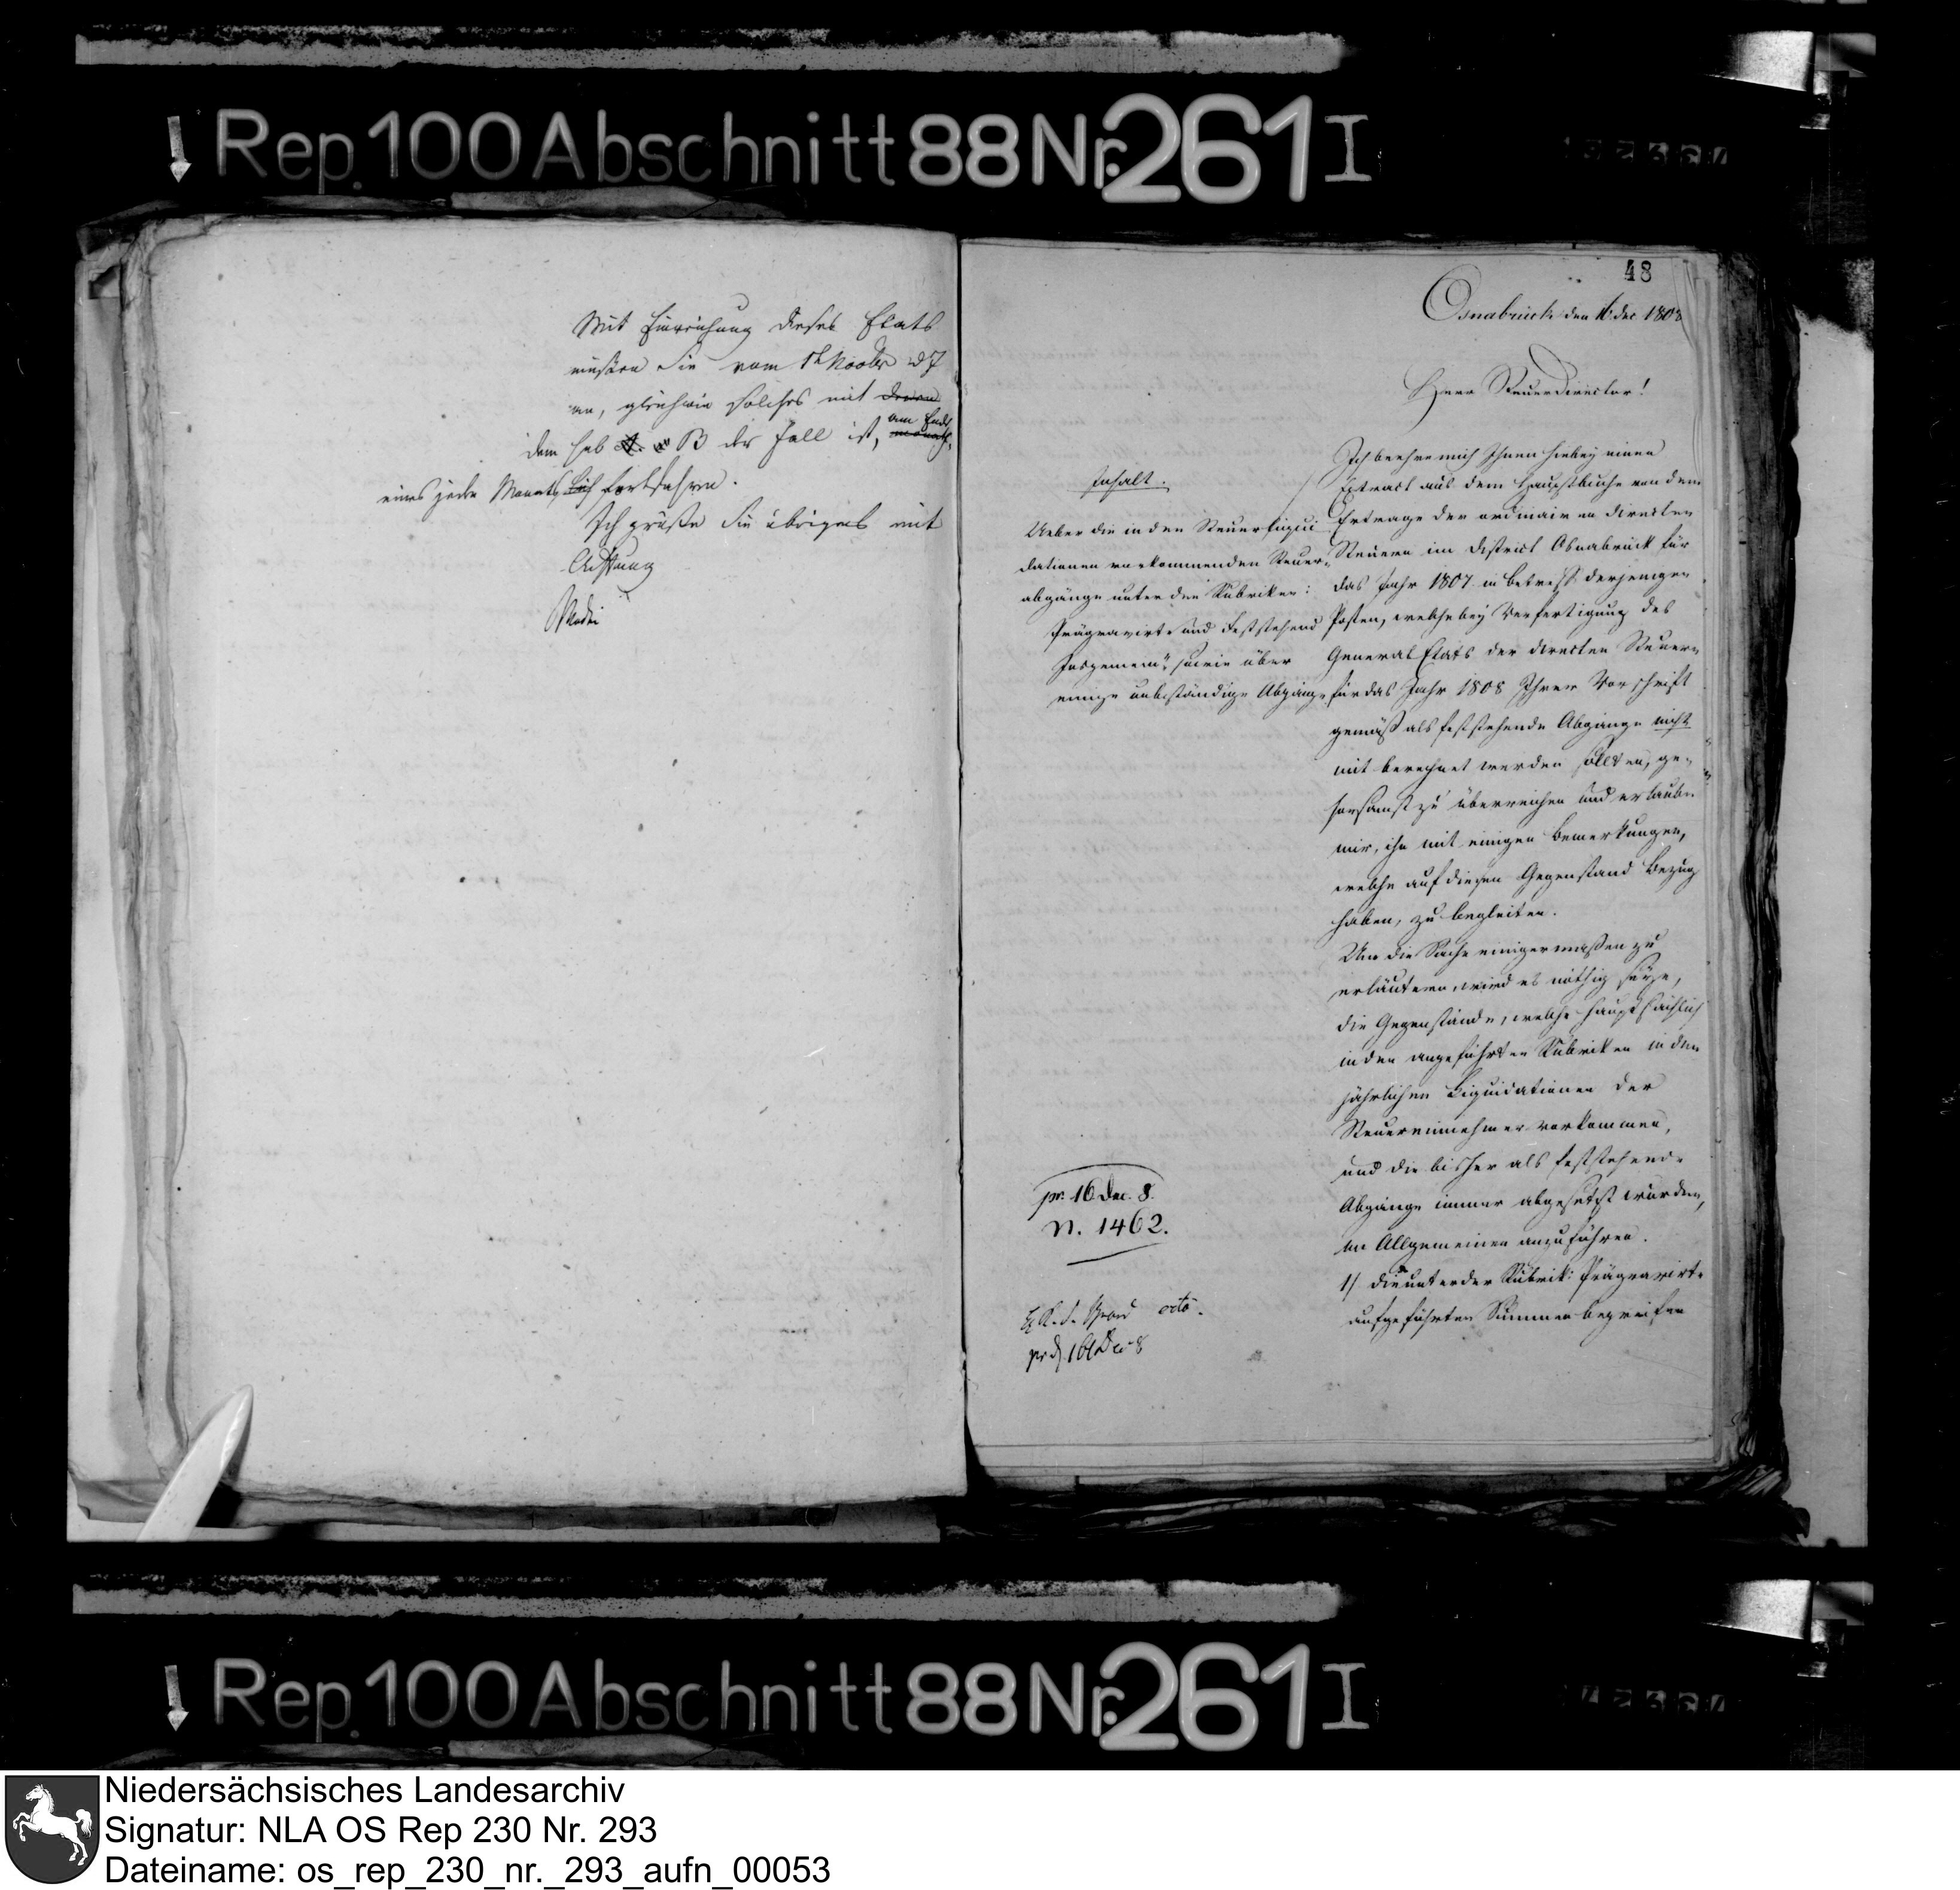 Rep. 100 Abschnitt 88 Nr. 261 I
Mit Einreichung dieses Etats
müssen Sie vom 1t Novbr d J
an, gleichwie solches mit denen
dem sub A. u B der Fall ist, monath-
am Ende
eines jeden Monats lich fortfahren.
Ich grüße Sie übrigens mit
Achtung
48
Osnabrück den dec 1808
Herr Steuerdirector!
Inhalt.
Ueber die in den Steuerliqui-
dationen vorkommenden Steuer-
abgänge unter den Rubriken:
Prägravirte und Feststehend
Insgemein, sowie über
einige unbeständige Abgänge
Ich beehre mich Ihnen hiebey einen
Extract aus dem Hauptbuche von dem
Ertrage der ordinairen directen
Steuern im District Osnabrück für
das Jahr 1807 in betreff derjenigen
Posten, welche bey Verfertigung des
General Etats der directen Steuern
für das Jahr 1808 Ihrer Vorschrift
gemäß als feststehende Abgänge nicht
mit berechnet werden sollten, ge-
horsamst zu überreichen und erlaube
mir, ihn mit einigen Bemerkungen,
welche auf diesen Gegenstand Bezug
haben, zu begleiten.
Um die Sache einigermaßen zu
erläutern, wird es nöthig seyn,
die Gegenstände, welche hauptsächlich
in den angeführten Rubriken in den
jährlichen Liquidationen der
Steuereinnehmer vorkommen,
und die bisher als feststehende
Abgänge immer abgesetzt wurden,
im Allgemeinen anzuführen.
1/ die unter der Rubrik: Prägravirte
aufgeführten Summen begreifen
pr. 16 Dec. 8.
N. 1462.
Rep. 100 Abschnitt 88 Nr. 261 I
Niedersächsisches Landesarchiv
Signatur: NLA OS Rep 230 Nr. 293
Dateiname: os_rep_230_nr._293_aufn_00053